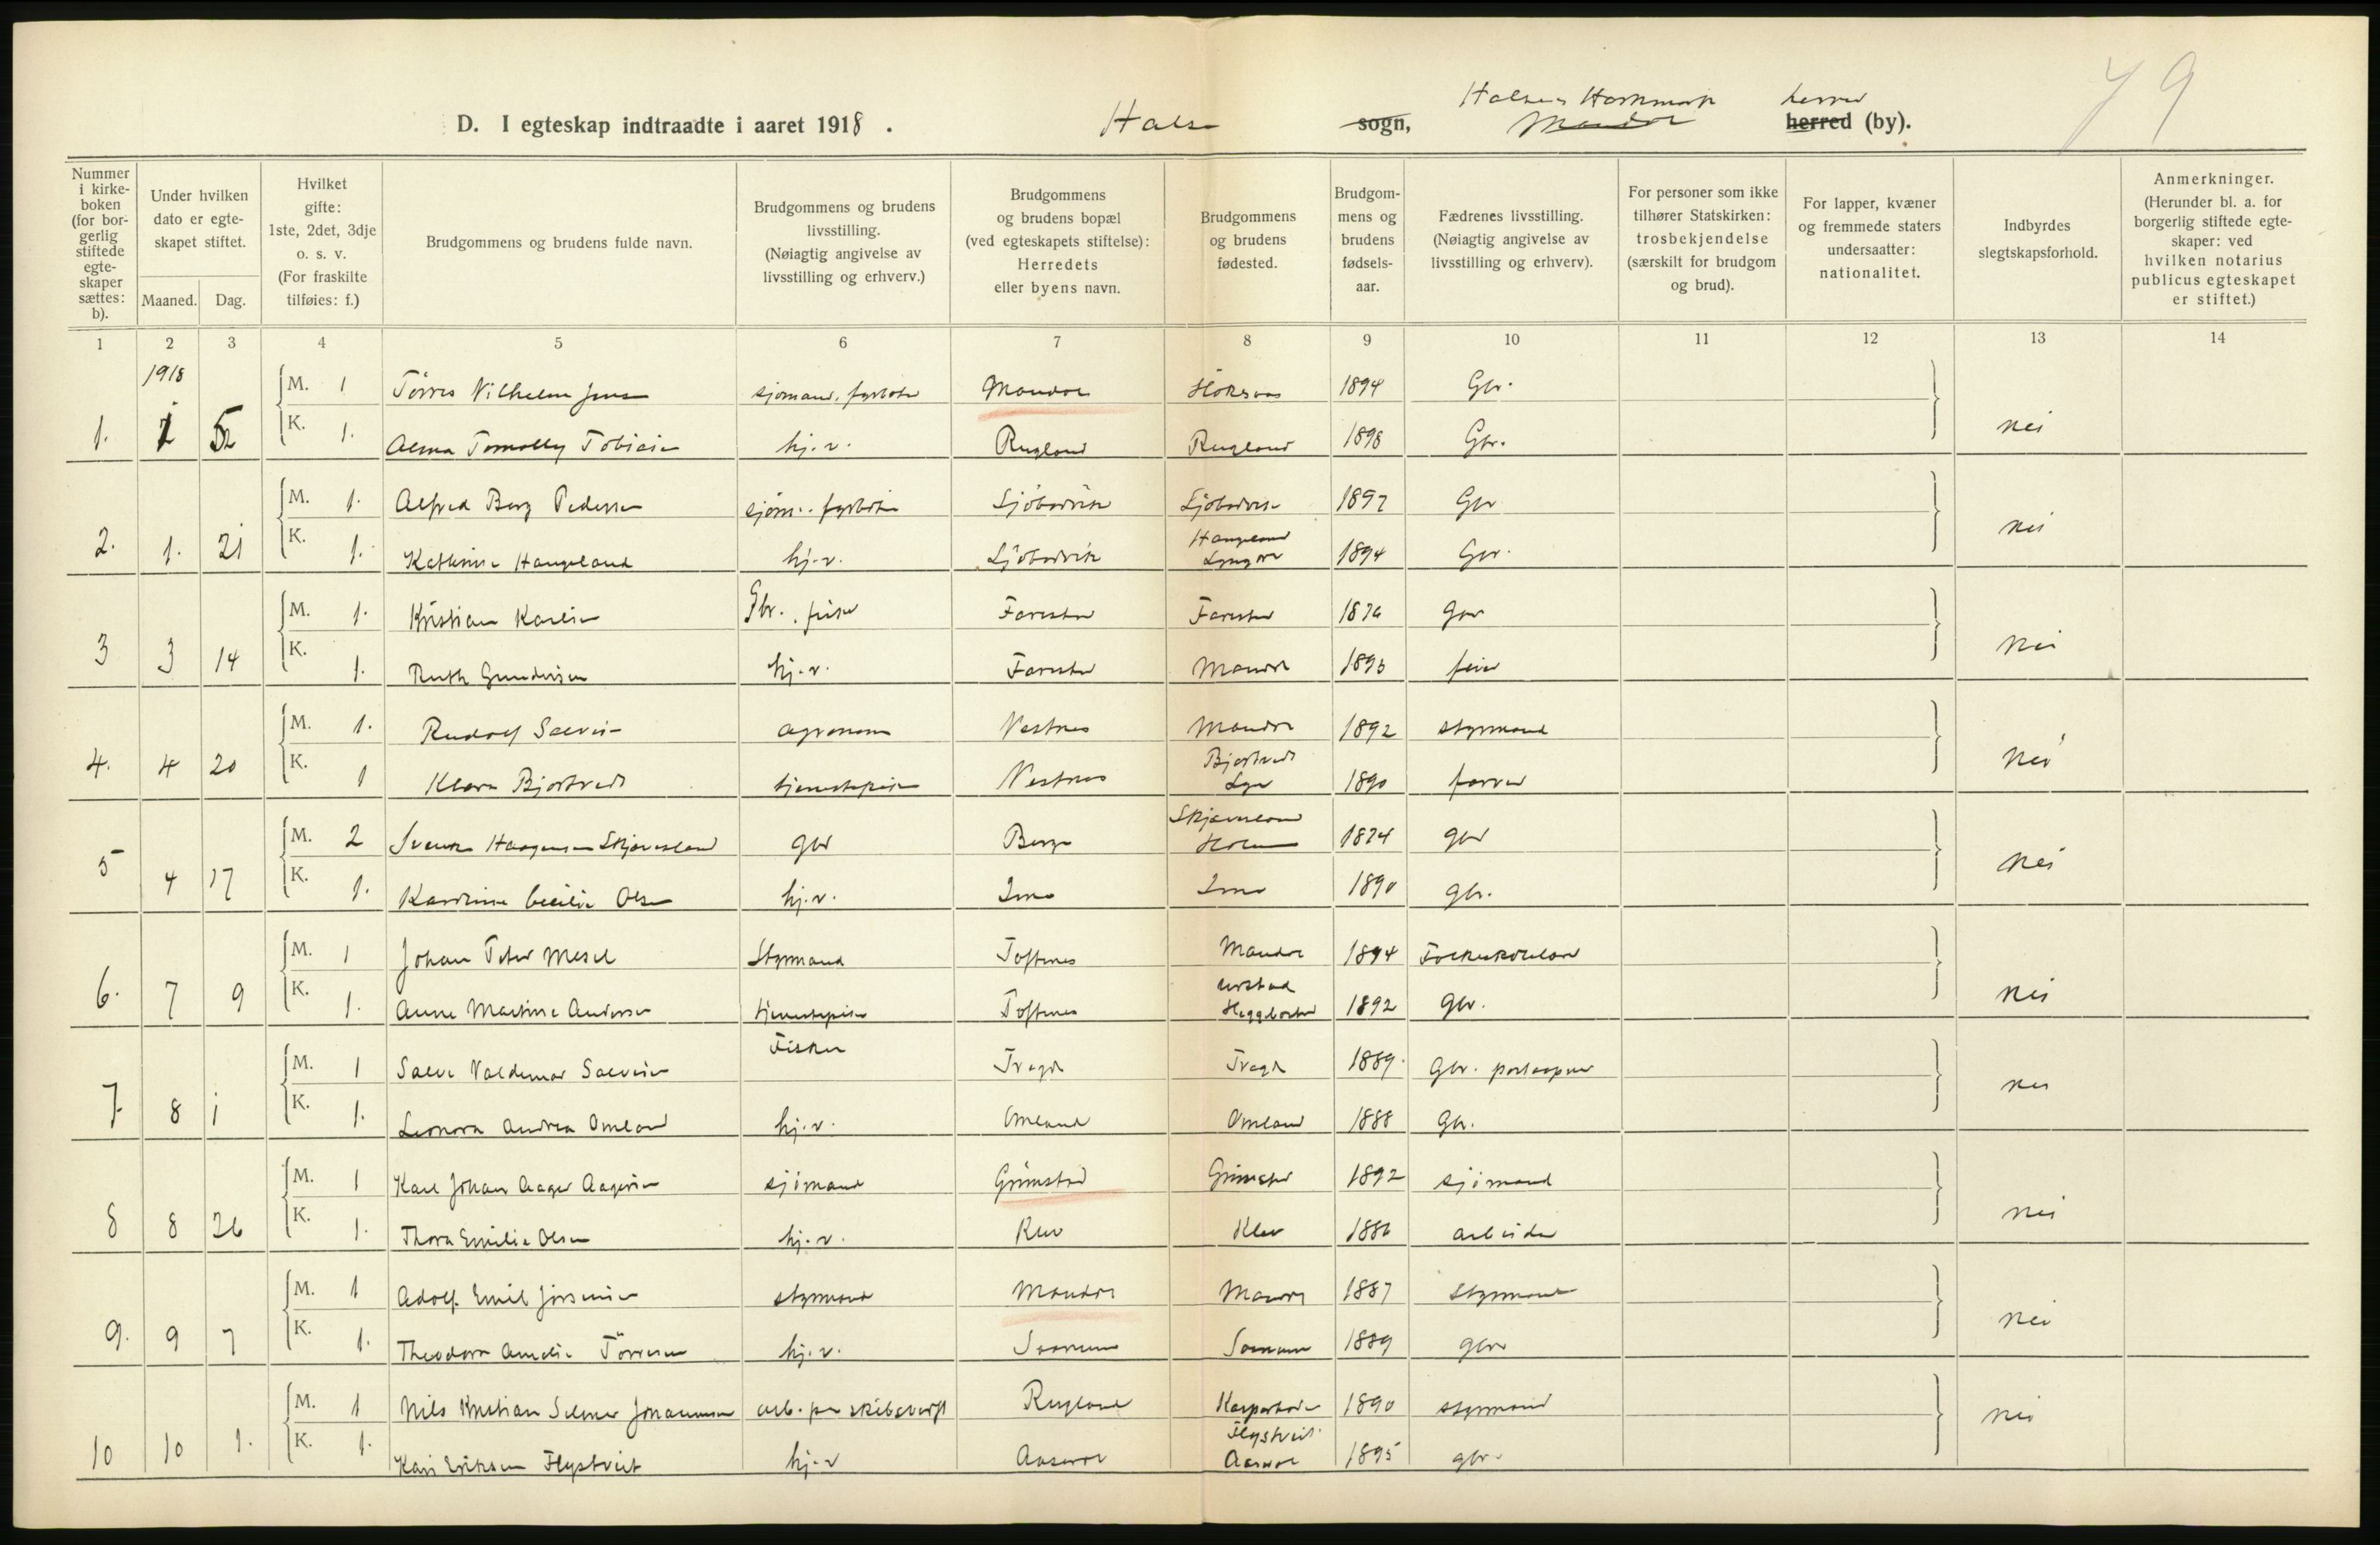 79
D. I egteskap indtraadte i aaret 1918.
Halse sogn, Halse & Harkmark herred
Mandal herred (by).
Nummer i kirkeboken (for borgerlig stiftede egteskaper sættes: b).
Under hvilken dato er egteskapet stiftet.
Maaned. Dag.
Hvilket gifte: 1ste, 2det, 3dje o. s. v. (For fraskilte tilføies: f.)
Brudgommens og brudens fulde navn.
Brudgommens og brudens livsstilling. (Nøiagtig angivelse av livsstilling og erhverv.)
Brudgommens og brudens bopæl (ved egteskapets stiftelse): Herredets eller byens navn.
Brudgommens og brudens fødested.
Brudgommens og brudens fødselsaar.
Fædrenes livsstilling. (Nøiagtig angivelse av livsstilling og erhverv).
For personer som ikke tilhører Statskirken: trosbekjendelse (særskilt for brudgom og brud).
For lapper, kvæner og fremmede staters undersaatter: nationalitet.
Indbyrdes slegtskapsforhold.
Anmerkninger. (Herunder bl. a. for borgerlig stiftede egteskaper: ved hvilken notarius publicus egteskapet er stiftet.)
1 2 3 4 5 6 7 8 9 10 11 12 13 14
1918
M. 1 Törres Vilhelm Jensen sjömand, fyrböter Mandal 1894 Gbr.
1. K. 1. Alma Tomally Tobiasen hj.v. Rugland Rugland 1898 Gbr. nei
M. 1. Alfred Berg Pedersen sjöm. fyrböter Sjöbodvik Sjöbodvik 1897 Gbr
2. 1. 21 K. 1. Kathrine Haugeland hj.v. Sjöbodvik Haugeland Lyngdal 1894 Gbr. nei
M. 1. Kristian Karlsen Gbr. fisker Farestad Farestad 1876 Gbr
3 3 14 K. 1. Ruth Gundersen hj.v. Farestad Mandal 1893 feier nei
M. 1. Rudolf Salvesen agronom Vestnes Mandal 1892 styrmand
4. 4 20 K. 1 Klara Bjortvedt tjenestepike Vestnes Bjortvedt 1890 nei
M. 2 Svenke Haagensen Skjævesland gbr Berge Skjævesland Holum 1874 gbr
5 4 17 K. 1. Kathrine Cecilie Olsen hj.v. Ime Ime 1890 gbr. nei
M. 1 Johan Peter Mesel Styrmand Toftenes Mandal 1894
6. 7 9 K. 1. Anne Martine Andersen tjenestepike Toftenes 1892 gbr. nei
M. 1 Salve Valdemar Salvesen Fisker Tregde Tregde 1889. Gbr. postaapner
7. 8 1 K. 1. Leonora Andrea Omland hj.v. Omland Omland 1888 Gbr. nei
M. 1 Karl Johan Aage Aagesen sjömand Grimstad Grimstad 1892 sjömand
8 8 26 K. 1. Thora Emilie Olsen hj.v. Klev Klev 1886 arbeider nei
M. 1 Adolf Emil Jörgensen styrmand Mandal Mandal 1887 Styrmand
9. 9 7 K. 1. Theodora Amalie Törresen hj.v. Saanum Saanum 1889 gbr nei
M. 1 Nils Kristian Selmer Johannessen arb. paa skibsverft Rugland 1890 styrmand
10 10 1. K. 1. Kari Eriksen Flystveit hj.v Aaseral Flystveit Aaseral 1895 gbr. nei